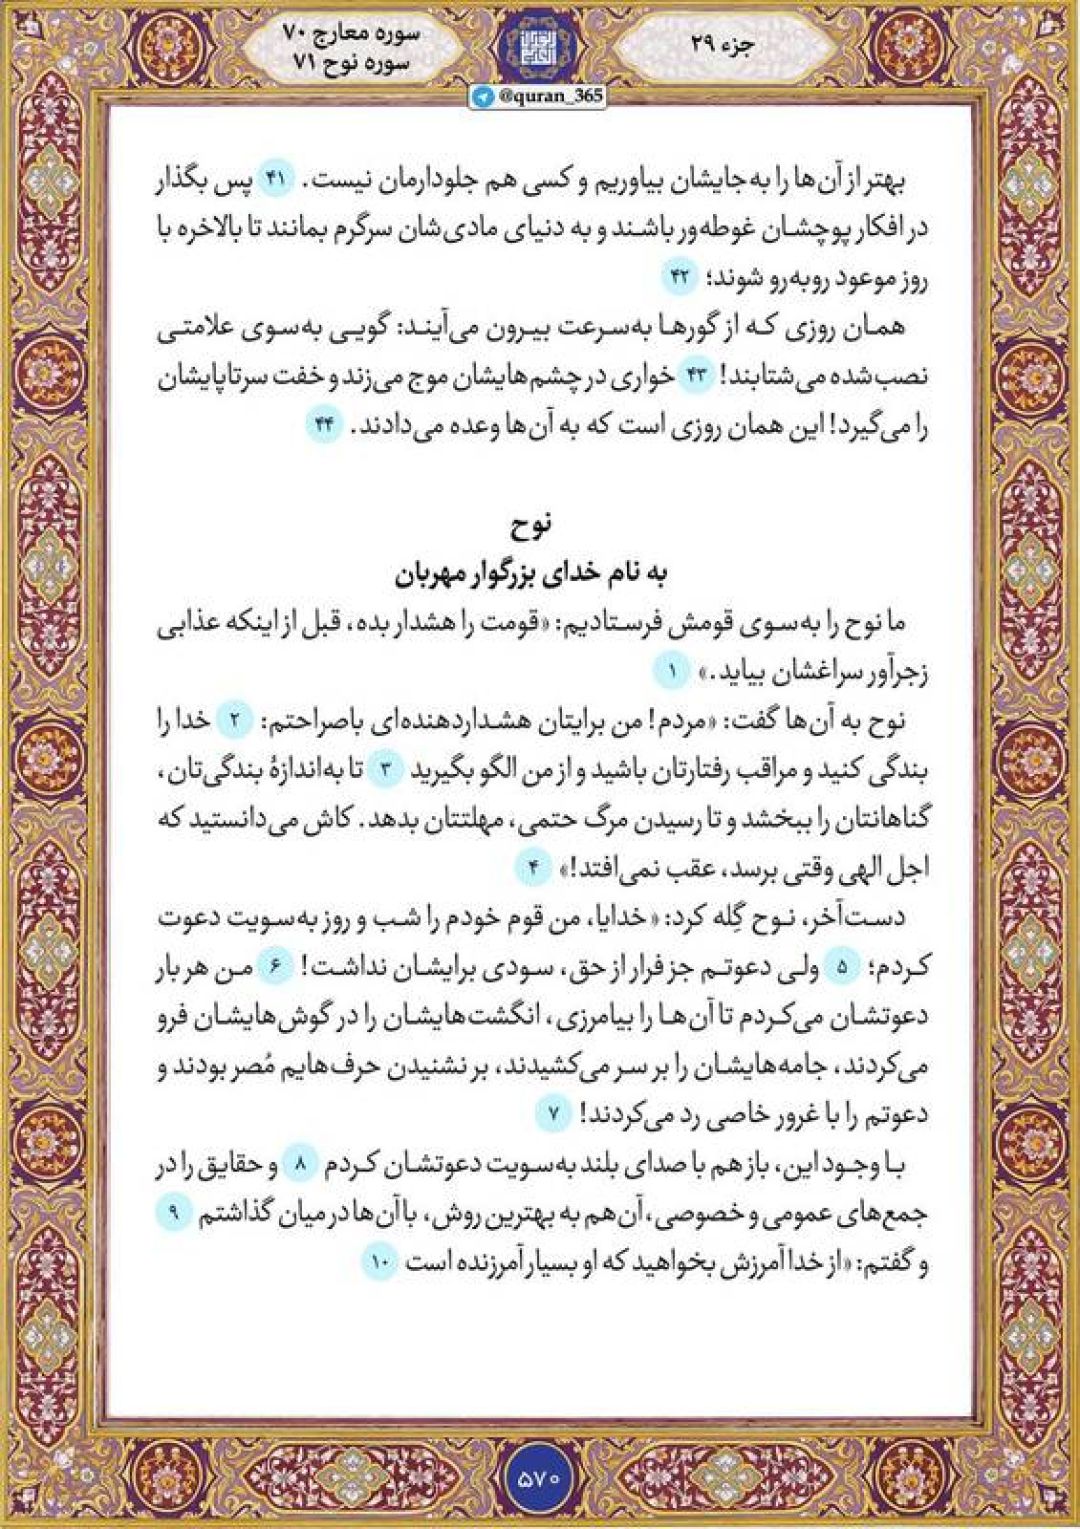 جزء ۲۹
سوره معارج ۷۰
سوره نوح ۷۱
@quran_365
بهتر از آن‌ها را به‌جایشان بیاوریم و کسی هم جلودارمان نیست. ۴۱ پس بگذار
در افکار پوچشان غوطه‌ور باشند و به دنیای مادی‌شان سرگرم بمانند تا بالاخره با
روز موعود روبه‌رو شوند؛ ۴۲
همان روزی که از گورها به‌سرعت بیرون می‌آیند: گویی به‌سوی علامتی
نصب‌شده می‌شتابند! ۴۳ خواری در چشم‌هایشان موج می‌زند و خفت سرتاپایشان
را می‌گیرد! این همان روزی است که به آن‌ها وعده می‌دادند. ۴۴
نوح
به نام خدای بزرگوار مهربان
ما نوح را به‌سوی قومش فرستادیم: «قومت را هشدار بده، قبل از اینکه عذابی
زجرآور سراغشان بیاید.» ۱
نوح به آن‌ها گفت: «مردم! من برایتان هشداردهنده‌ای باصراحتم: ۲ خدا را
بندگی کنید و مراقب رفتارتان باشید و از من الگو بگیرید ۳ تا به‌اندازهٔ بندگی‌تان،
گناهانتان را ببخشد و تا رسیدن مرگ حتمی، مهلتتان بدهد. کاش می‌دانستید که
اجل الهی وقتی برسد، عقب نمی‌افتد!» ۴
دست‌آخر، نوح گِله کرد: «خدایا، من قوم خودم را شب و روز به‌سویت دعوت
کردم؛ ۵ ولی دعوتم جز فرار از حق، سودی برایشان نداشت! ۶ من هر بار
دعوتشان می‌کردم تا آن‌ها را بیامرزی، انگشت‌هایشان را در گوش‌هایشان فرو
می‌کردند، جامه‌هایشان را بر سر می‌کشیدند، بر نشنیدن حرف‌هایم مُصر بودند و
دعوتم را با غرور خاصی رد می‌کردند! ۷
با وجود این، باز هم با صدای بلند به‌سویت دعوتشان کردم ۸ و حقایق را در
جمع‌های عمومی و خصوصی، آن‌هم به بهترین روش، با آن‌ها در میان گذاشتم ۹
و گفتم: «از خدا آمرزش بخواهید که او بسیار آمرزنده است ۱۰
۵۷۰